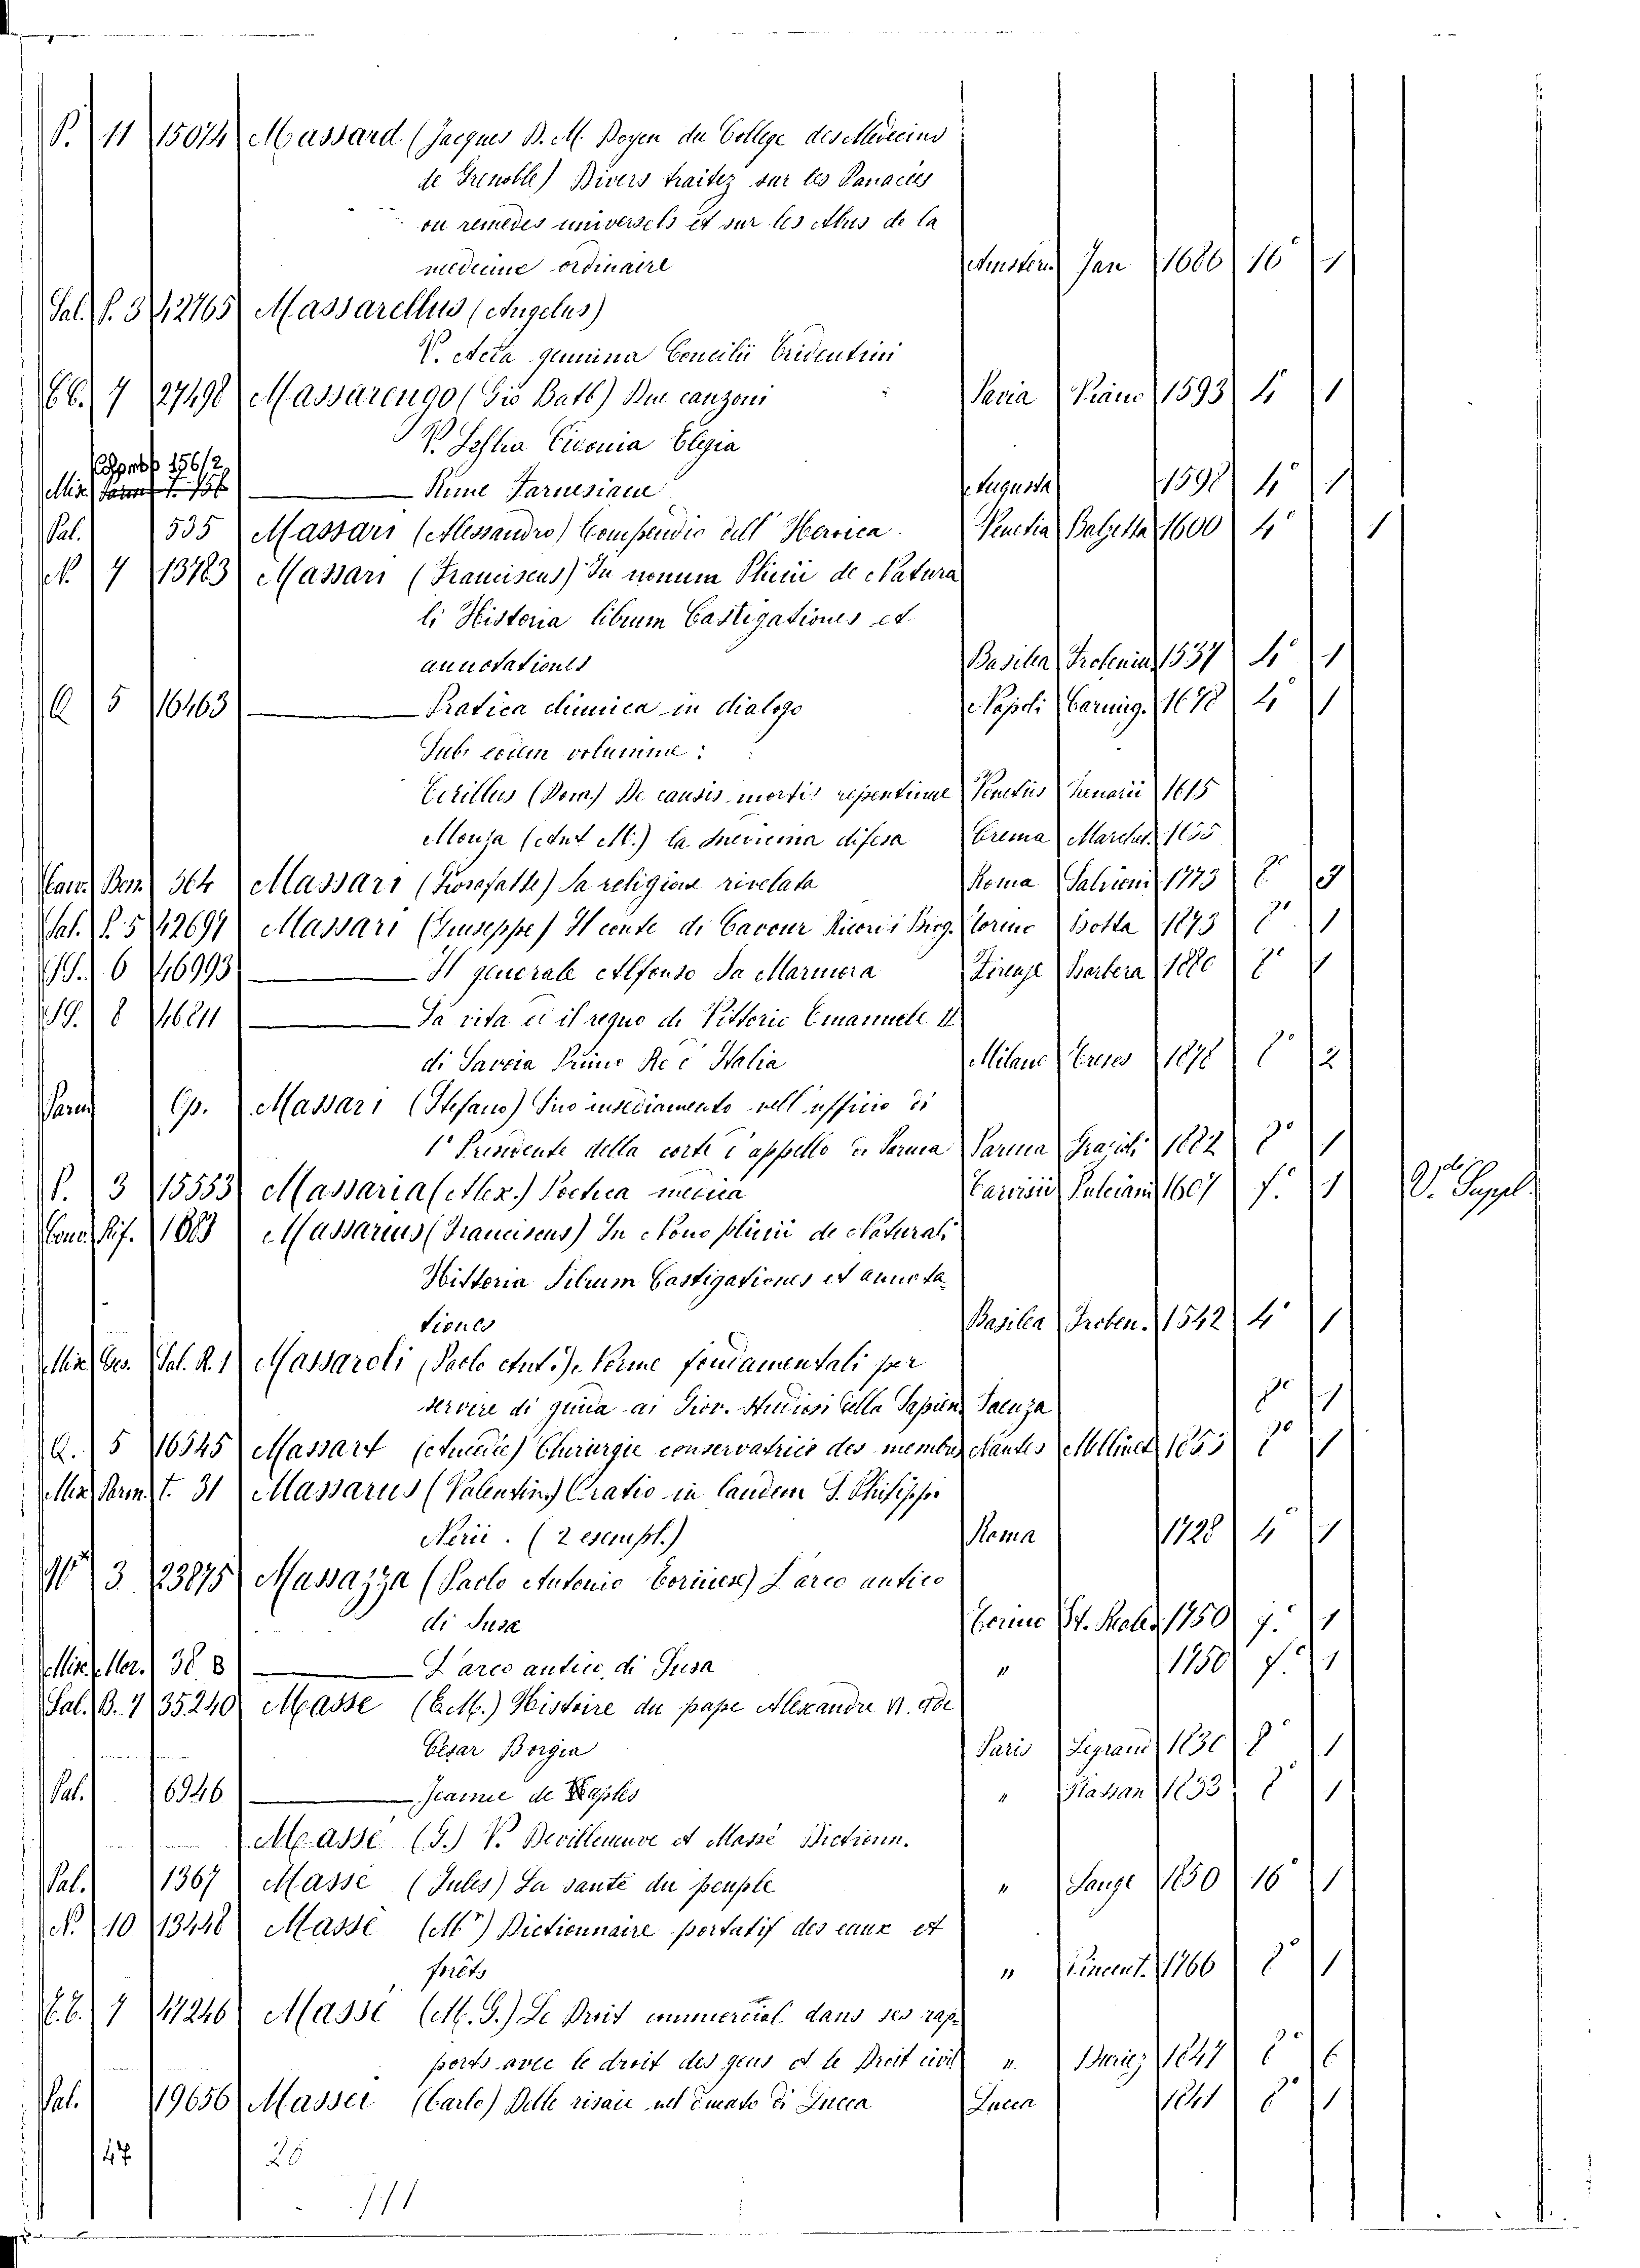 P. 11 15074 Massard (Jacques D. M. Doyen du College des Medecins
de Grenoble) Divers traitez sur les Panacées
ou remedes universels et sur les Abus de la
medecine ordinaire Amsterd. Jan 1686 16° 1
Sal. P. 3 42765 Massarellus (Angelus)
V. Acta genuina Concilii Tridentini
EE. 7 27498 Massarengo (Gio Batt) Due canzoni Pavia Viano 1593 4° 1
V. Sestia Cidonia Elegia
156/2
Misc. Rime Farnesiane Augusta 1598 4° 1
Pal. 535 Massari (Alessandro) Compendio dell' Heroica Venetia Balzetta 1600 4° 1
N. 7 13783 Massari (Franciscus) In nonum Plinii de Natura
li Historia librum Castigationes et
annotationes Basilea Frobenius 1537 4° 1
Q 5 16463 Pratica chimica in dialogo Napoli Carning. 1678 4° 1
Sub eodem volumine:
Cirillus (Dom.) De causis mortis repentinae Venetiis 1615
Monza (Ant M.) la Medicina difesa Crema Marchet. 1655
Cam. Ben. 364 Massari (Giosafatte) La religione rivelata Roma Salvioni 1773 8° 3
Sal. P. 5 42691 Massari (Giuseppe) Il conte di Cavour Ricordi Biog. Torino Botta 1873 8° 1
6 46993 Il generale Alfonso La Marmora Firenze Barbera 1880 8° 1
8 46211 La vita ed il regno di Vittorio Emanuele II
di Savoia Primo Re d'Italia Milano Treves 1878 8° 2
Parm Op. Massari (Stefano) Suo insediamento nell' ufficio di
1° Presidente della corte d'appello di Parma Parma Grazioli 1882 8° 1
P. 3 15553 Massaria (Alex.) Pratica medica Tarvisii 1607 f. 1 V. Suppl.
Cond. Rif. 1883 Massarius (Franciscus) In Nono plinii de Naturali
Historia Librum Castigationes et annota
tiones Basilea Froben. 1542 4° 1
Misc. Ges. Sal. R. 1 Massaroli (Paolo Ant.) Norme fondamentali per
servire di guida ai Giov. Studiosi della Sapien. Faenza 8° 1
Q. 5 16545 Massart Chirurgie conservatrice des membres Nantes Mellinet 1853 8° 1
Misc. Parm. t. 31 Massarus (Valentin.) Oratio in laudem S. Philippi
Nerii. (2 esempl.) Roma 1728 4° 1
3 23875 Massazza (Paolo Antonio Torinese) L'arco antico
di Susa Torino St. Reale 1750 f. 1
Misc. Mer. 38 8 L'arco antico di Susa " 1750 f. 1
Sal. B. 7 35.240 Masse (E. M.) Histoire du pape Alexandre VI. et de
César Borgia Paris Legrand 1830 8° 1
Pal. 6946 Jeanne de Naples " Hassan 1833 8° 1
Massé (G.) V. Devilleneuve et Massé Dictionn.
Pal. 1367 Masse (Jules) La santé du peuple " Lange 1850 16° 1
N. 10 13448 Massé (Mr) Dictionnaire portatif des eaux et
forêts " Vincent. 1766 8° 1
E.E. 7 47246 Massé (M. G.) Le Droit commercial dans ses rap-
ports avec le droit des gens et le Droit civil " 1847 8° 6
Pal. 19656 Massei (Carlo) Delle risaie nel ducato di Lucca Lucca 1841 8° 1
47 28
711